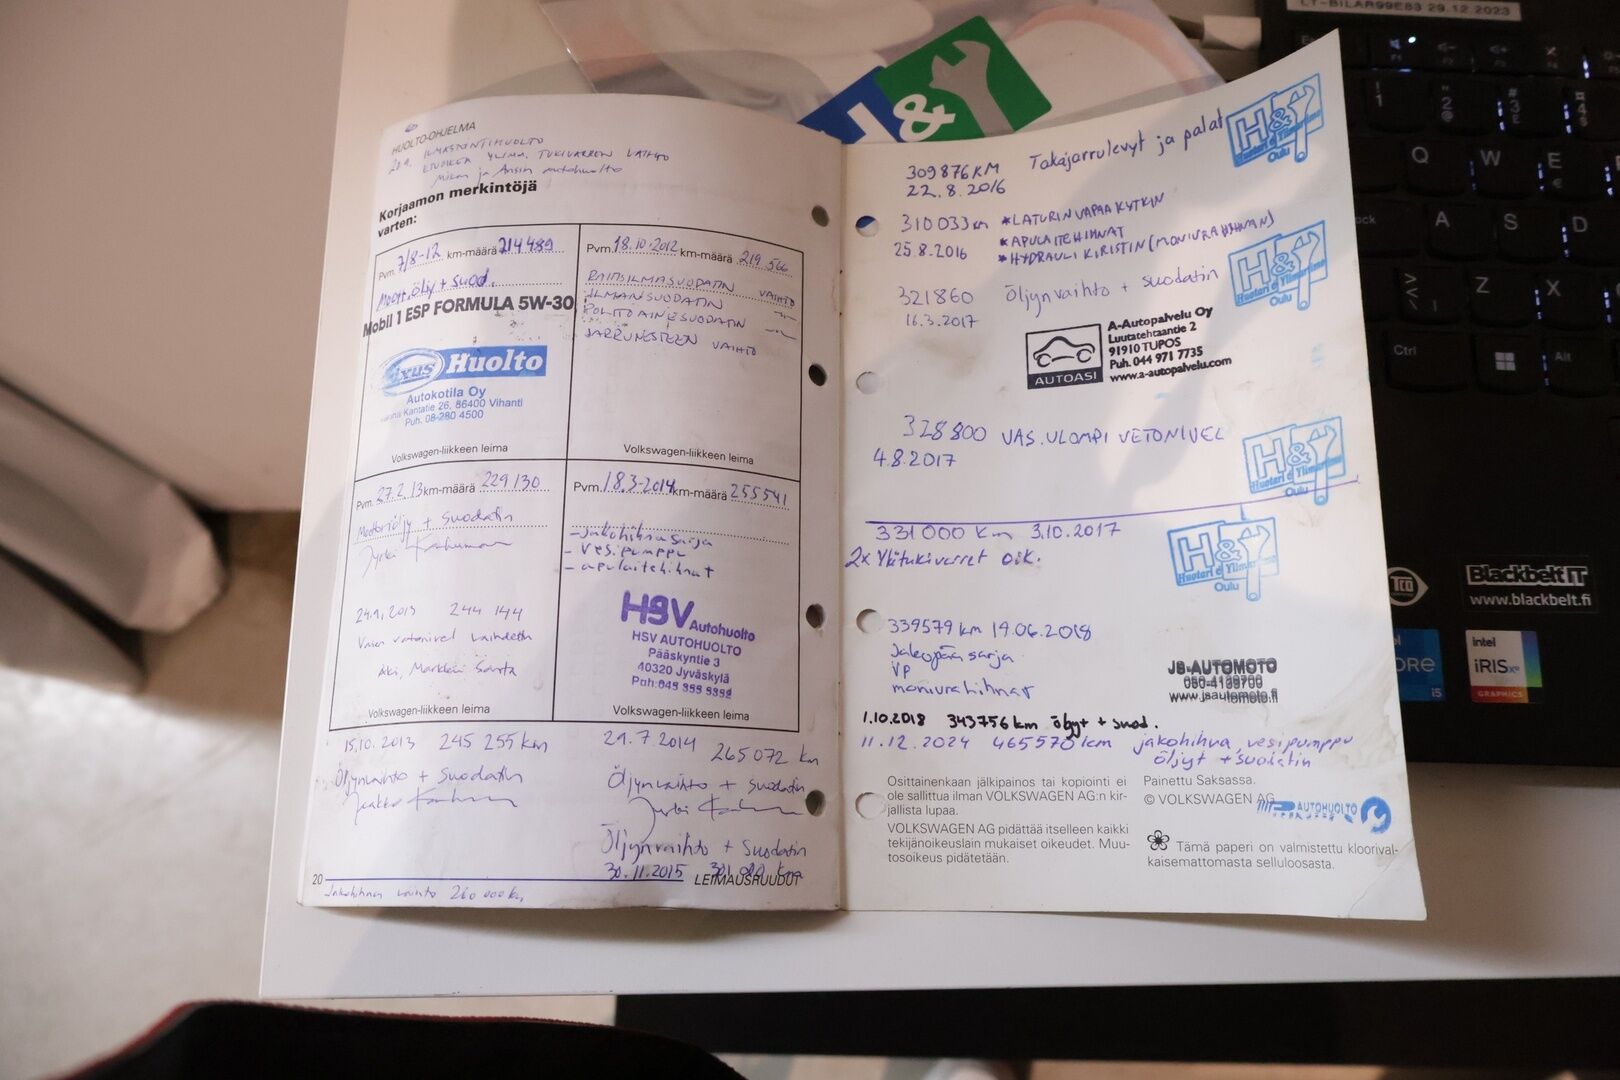 HUOLTO-OHJELMA
ILMASTOINTIHUOLTO
TUKIVARREN VAIHTO
Mikon ja Anssin autohuolto
Korjaamon merkintöjä
varten:
Pvm. 7/8-12 km-määrä 214489
Moott.öljy + suod.
Mobil 1 ESP FORMULA 5W-30
Huolto
Autokotila Oy
Kantatie 26, 86400 Vihanti
Puh. 08-280 4500
Volkswagen-liikkeen leima
Pvm. 18.10.2012 km-määrä 219 566
RAITISILMASUODATIN VAIHTO
ILMANSUODATIN
POLTTOAINESUODATIN
JARRUNESTEEN VAIHTO
Volkswagen-liikkeen leima
Pvm. 27.2.13 km-määrä 229130
Moottoriöljy + suodatin
24.9.2013 244 144
Vasen vetonivel vaihdettu
Volkswagen-liikkeen leima
Pvm. 18.3-2014 km-määrä 255541
- jakohihnasarja
- vesipumppu
- apulaitehihnat
HSV Autohuolto
HSV AUTOHUOLTO
Pääskyntie 3
40320 Jyväskylä
Puh.045 355 5352
Volkswagen-liikkeen leima
15.10.2013 245 255 km
Öljynvaihto + suodatin
29.7.2014 265 072 km
Öljynvaihto + suodatin
Öljynvaihto + suodatin
30.11.2015
20 LEIMAUSRUUDUT
Jakohihnan vaihto 260 000 km
H&Y
309876 KM Takajarrulevyt ja palat
22.8.2016
H&Y
Huotari & Ylimartimo
Oulu
310 033 km *LATURIN VAPAAKYTKIN
25.8.2016 *APULAITEHIHNAT
*HYDRAULI KIRISTIN (MONIURAHIHNAN)
H&Y
Huotari & Ylimartimo
Oulu
321860 Öljynvaihto + suodatin
16.3.2017
A-Autopalvelu Oy
Luutatehtaantie 2
91910 TUPOS
Puh. 044 971 7735
www.a-autopalvelu.com
AUTOASI
328800 VAS. ULOMPI VETONIVEL
4.8.2017
H&Y
Huotari & Ylimartimo
Oulu
331000 km 3.10.2017
2x Ylätukivarret oik.
H&Y
Huotari & Ylimartimo
Oulu
339579 km 19.06.2018
Jakopää sarja
VP
moniurahihnat
JS-AUTOMOTO
050-4139700
www.jsautomoto.fi
1.10.2018 343756 km öljyt + suod.
11.12.2024 465570 km jakohihna, vesipumppu
öljyt + suodatin
Osittainenkaan jälkipainos tai kopiointi ei
ole sallittua ilman VOLKSWAGEN AG:n kir-
jallista lupaa.
VOLKSWAGEN AG pidättää itselleen kaikki
tekijänoikeuslain mukaiset oikeudet. Muu-
tosoikeus pidätetään.
Painettu Saksassa.
© VOLKSWAGEN AG
AUTOHUOLTO
Tämä paperi on valmistettu kloorival-
kaisemattomasta selluloosasta.
LT-BILAR99E83 29.12.2023
Q W E
A S D
Z X
Ctrl Alt
BlackbeltIT
www.blackbelt.fi
intel
iRISxe
GRAPHICS
i5